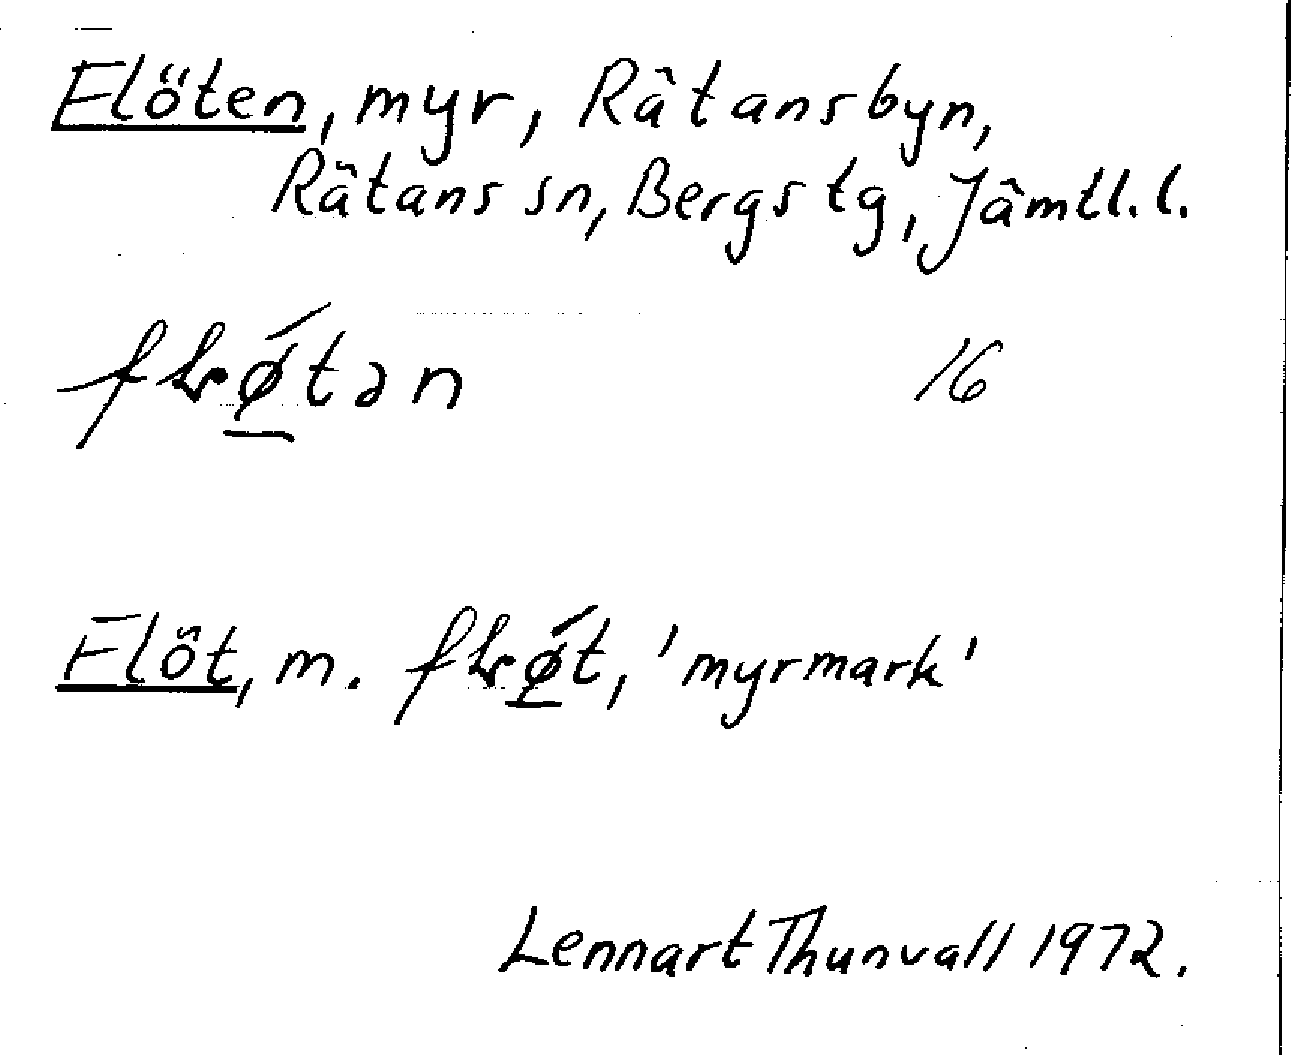 Flöten, myr, Rätansbyn,
Rätans sn, Bergs tg, Jämtl. l.
fłǿtən 16
Flöt, m. fłǿt, 'myrmark'
Lennart Thunvall 1972.